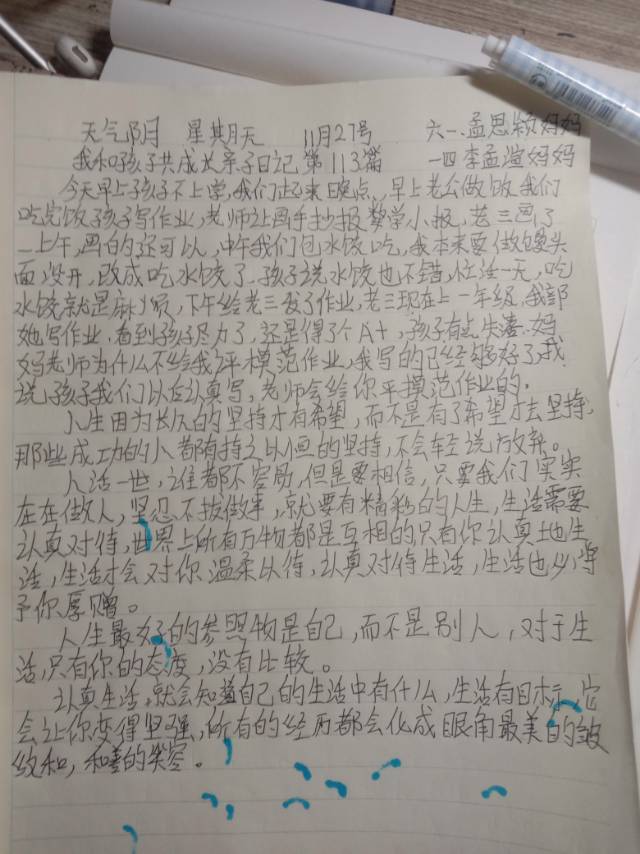 天气阴 星期天 11月27号 六一.孟思颖妈妈
我和孩子共成长亲子日记第113篇 一四李孟渲妈妈
今天早上孩子不上学,我们起来晚点.早上老公做饭.我们
吃完饭孩子写作业,老师让画手抄报数学小报,老三画了
一上午,画的还可以,中午我们包水饺吃,我本来要做馒头
面没开,改成吃水饺了.孩子说水饺也不错,忙活一天,吃
水饺就是麻烦,下午给老三发了作业,老三现在上一年级.我部
她写作业.看到孩子尽力了,还是得了个A+,孩子有点失落.妈
妈老师为什么不给我评模范作业,我写的已经够好了,我
说孩子我们以后认真写,老师会给你平模范作业的.
人生因为长久的坚持才有希望,而不是有了希望才去坚持,
那些成功的人都有持之以恒的坚持,不会轻说放弃。
人活一世,谁都不容易,但是要相信,只要我们实实
在在做人,坚忍不拔做事,就要有精彩的人生,生活需要
认真对待,世界上所有万物都是互相的只有你认真地生
活,生活才会对你温柔以待,认真对待生活,生活也必将
予你厚赠。
人生最好的参照物是自己,而不是别人,对于生
活,只有你的态度,没有比较。
认真生活,就会知道自己的生活中有什么,生活有目标,它
会让你变得坚强,所有的经历都会化成眼角最美的皱
纹和,和善的笑容。